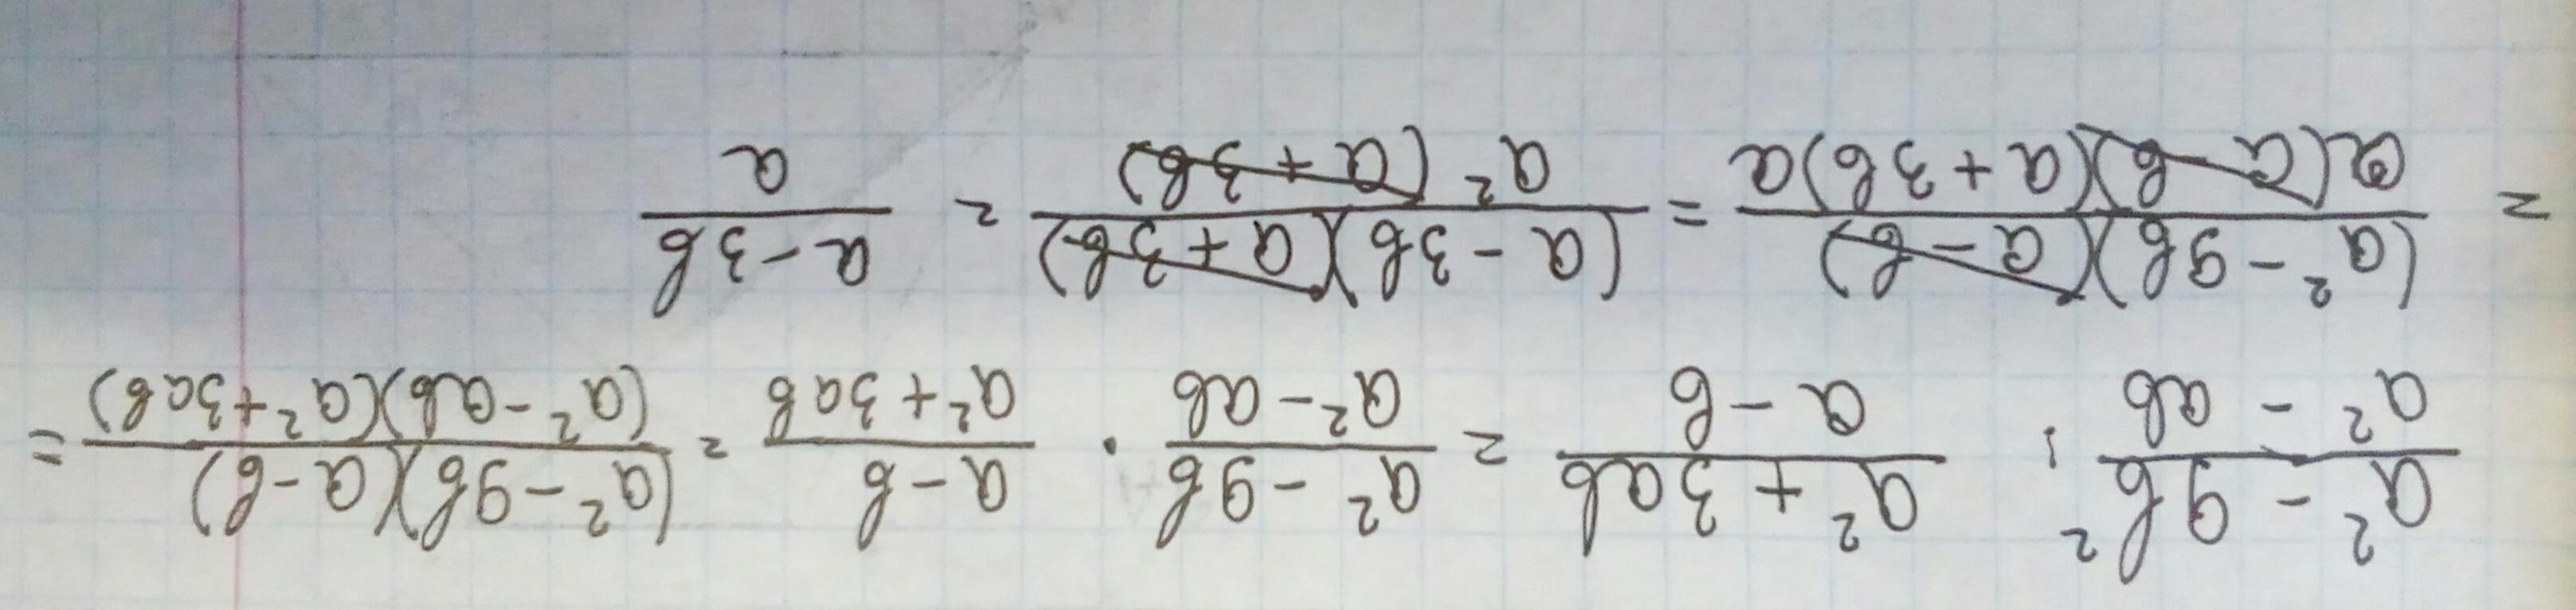 \frac{a^2 - 9b^2}{a^2 - ab} : \frac{a^2 + 3ab}{a - b} = \frac{a^2 - 9b}{a^2 - ab} \cdot \frac{a - b}{a^2 + 3ab} = \frac{(a^2 - 9b)(a - b)}{(a^2 - ab)(a^2 + 3ab)} =
= \frac{(a^2 - 9b)(a - b)}{a(a - b)(a + 3b)a} = \frac{(a - 3b)(a + 3b)}{a^2(a + 3b)} = \frac{a - 3b}{a}